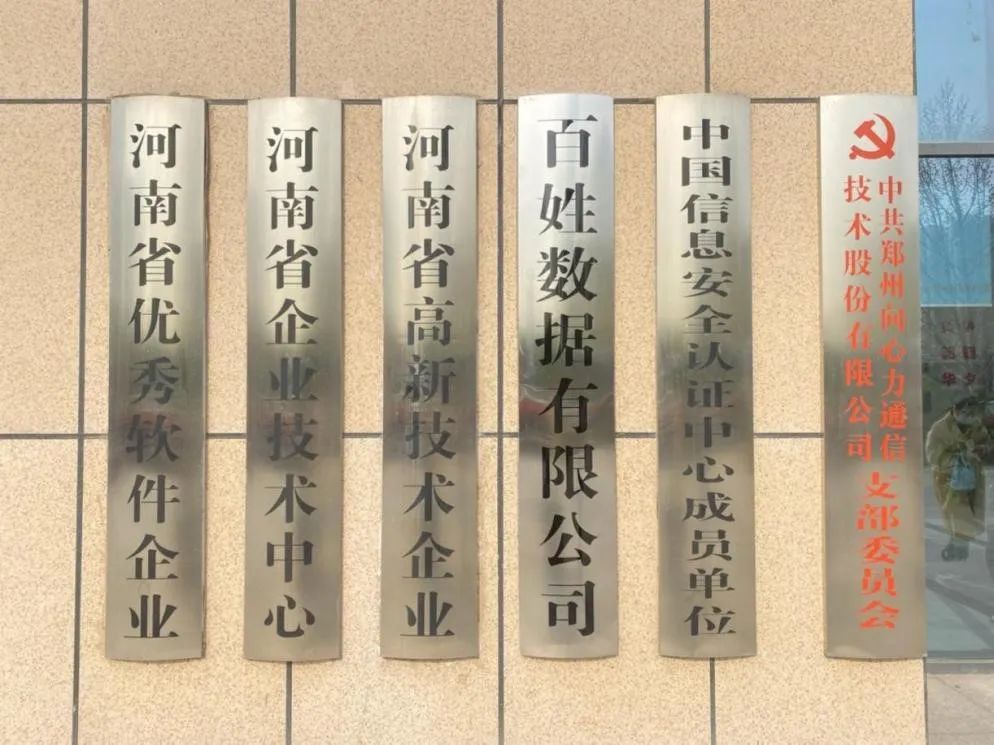 河南省优秀软件企业
河南省企业技术中心
河南省高新技术企业
百姓数据有限公司
中国信息安全认证中心成员单位
中共郑州向心力通信
技术股份有限公司
支部委员会